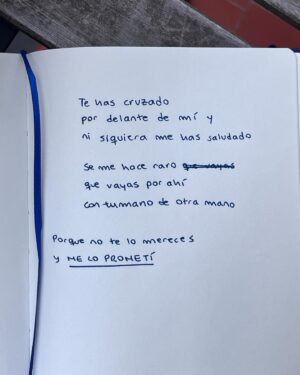 Te has cruzado
por delante de mí y
ni siquiera me has saludado
Se me hace raro que vayas
que vayas por ahí
con tu mano de otra mano
Porque no te lo mereces
y ME LO PROMETÍ